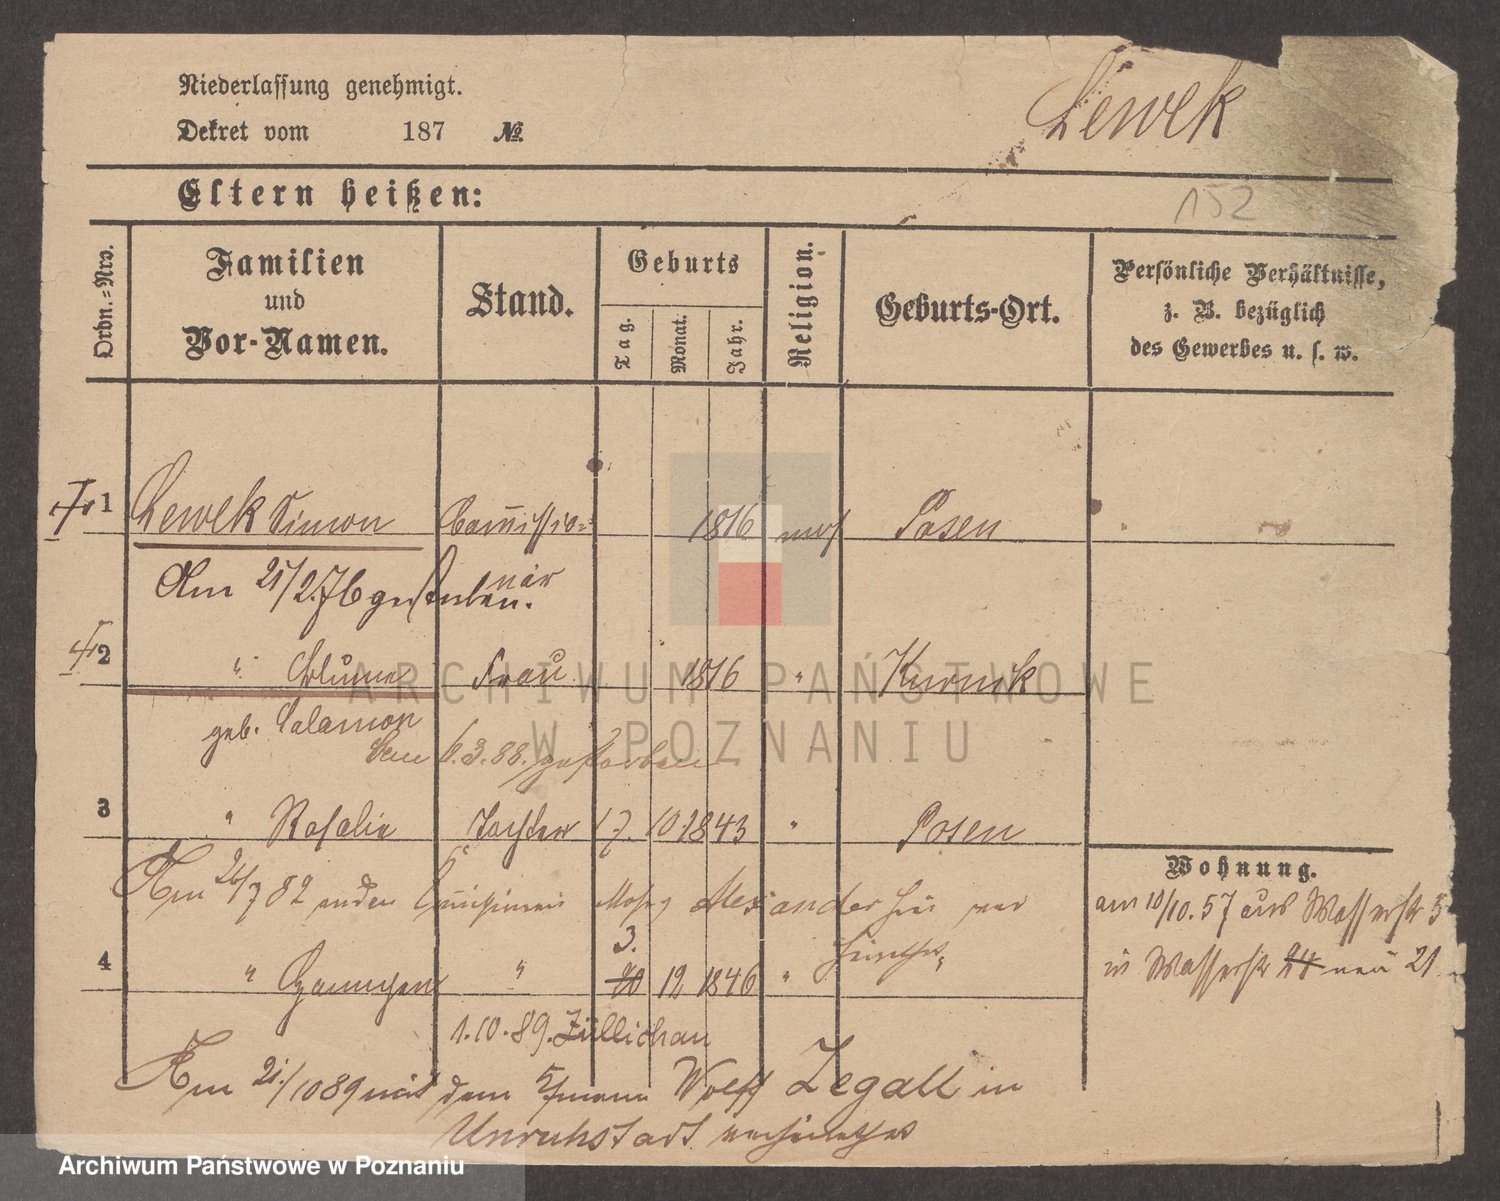 Niederlassung genehmigt.
Dekret vom 187 №
Lewek
Eltern heißen:
152
Ordn.=Nro.
Familien und Vor-Namen.
Stand.
Geburts
Tag.
Monat.
Jahr.
Religion.
Geburts-Ort.
Persönliche Verhältnisse,
z. B. bezüglich
des Gewerbes u. s. w.
1 Lewek Simon Commissio= 1816 mos Posen
när
Am 21/2.76 gestorben.
2 " Blume Frau 1816 " Kurnik
geb. Salamon
6.3.88. gestorben
3 " Rosalie Tochter 17. 10. 1843 " Posen
Wohnung.
Am 26/7 82 an den Alexander hier ver
am 10/10. 57 aus Wasserstr 5
3.
4 " " 20 12 1846 "
in Wasserstr 24 neu 21
1.10.89. Züllichau
Am 21/10 89 mit dem Wolff Zegall in
Unruhstadt verheirathet
ARCHIWUM PAŃSTWOWE
W POZNANIU
Archiwum Państwowe w Poznaniu